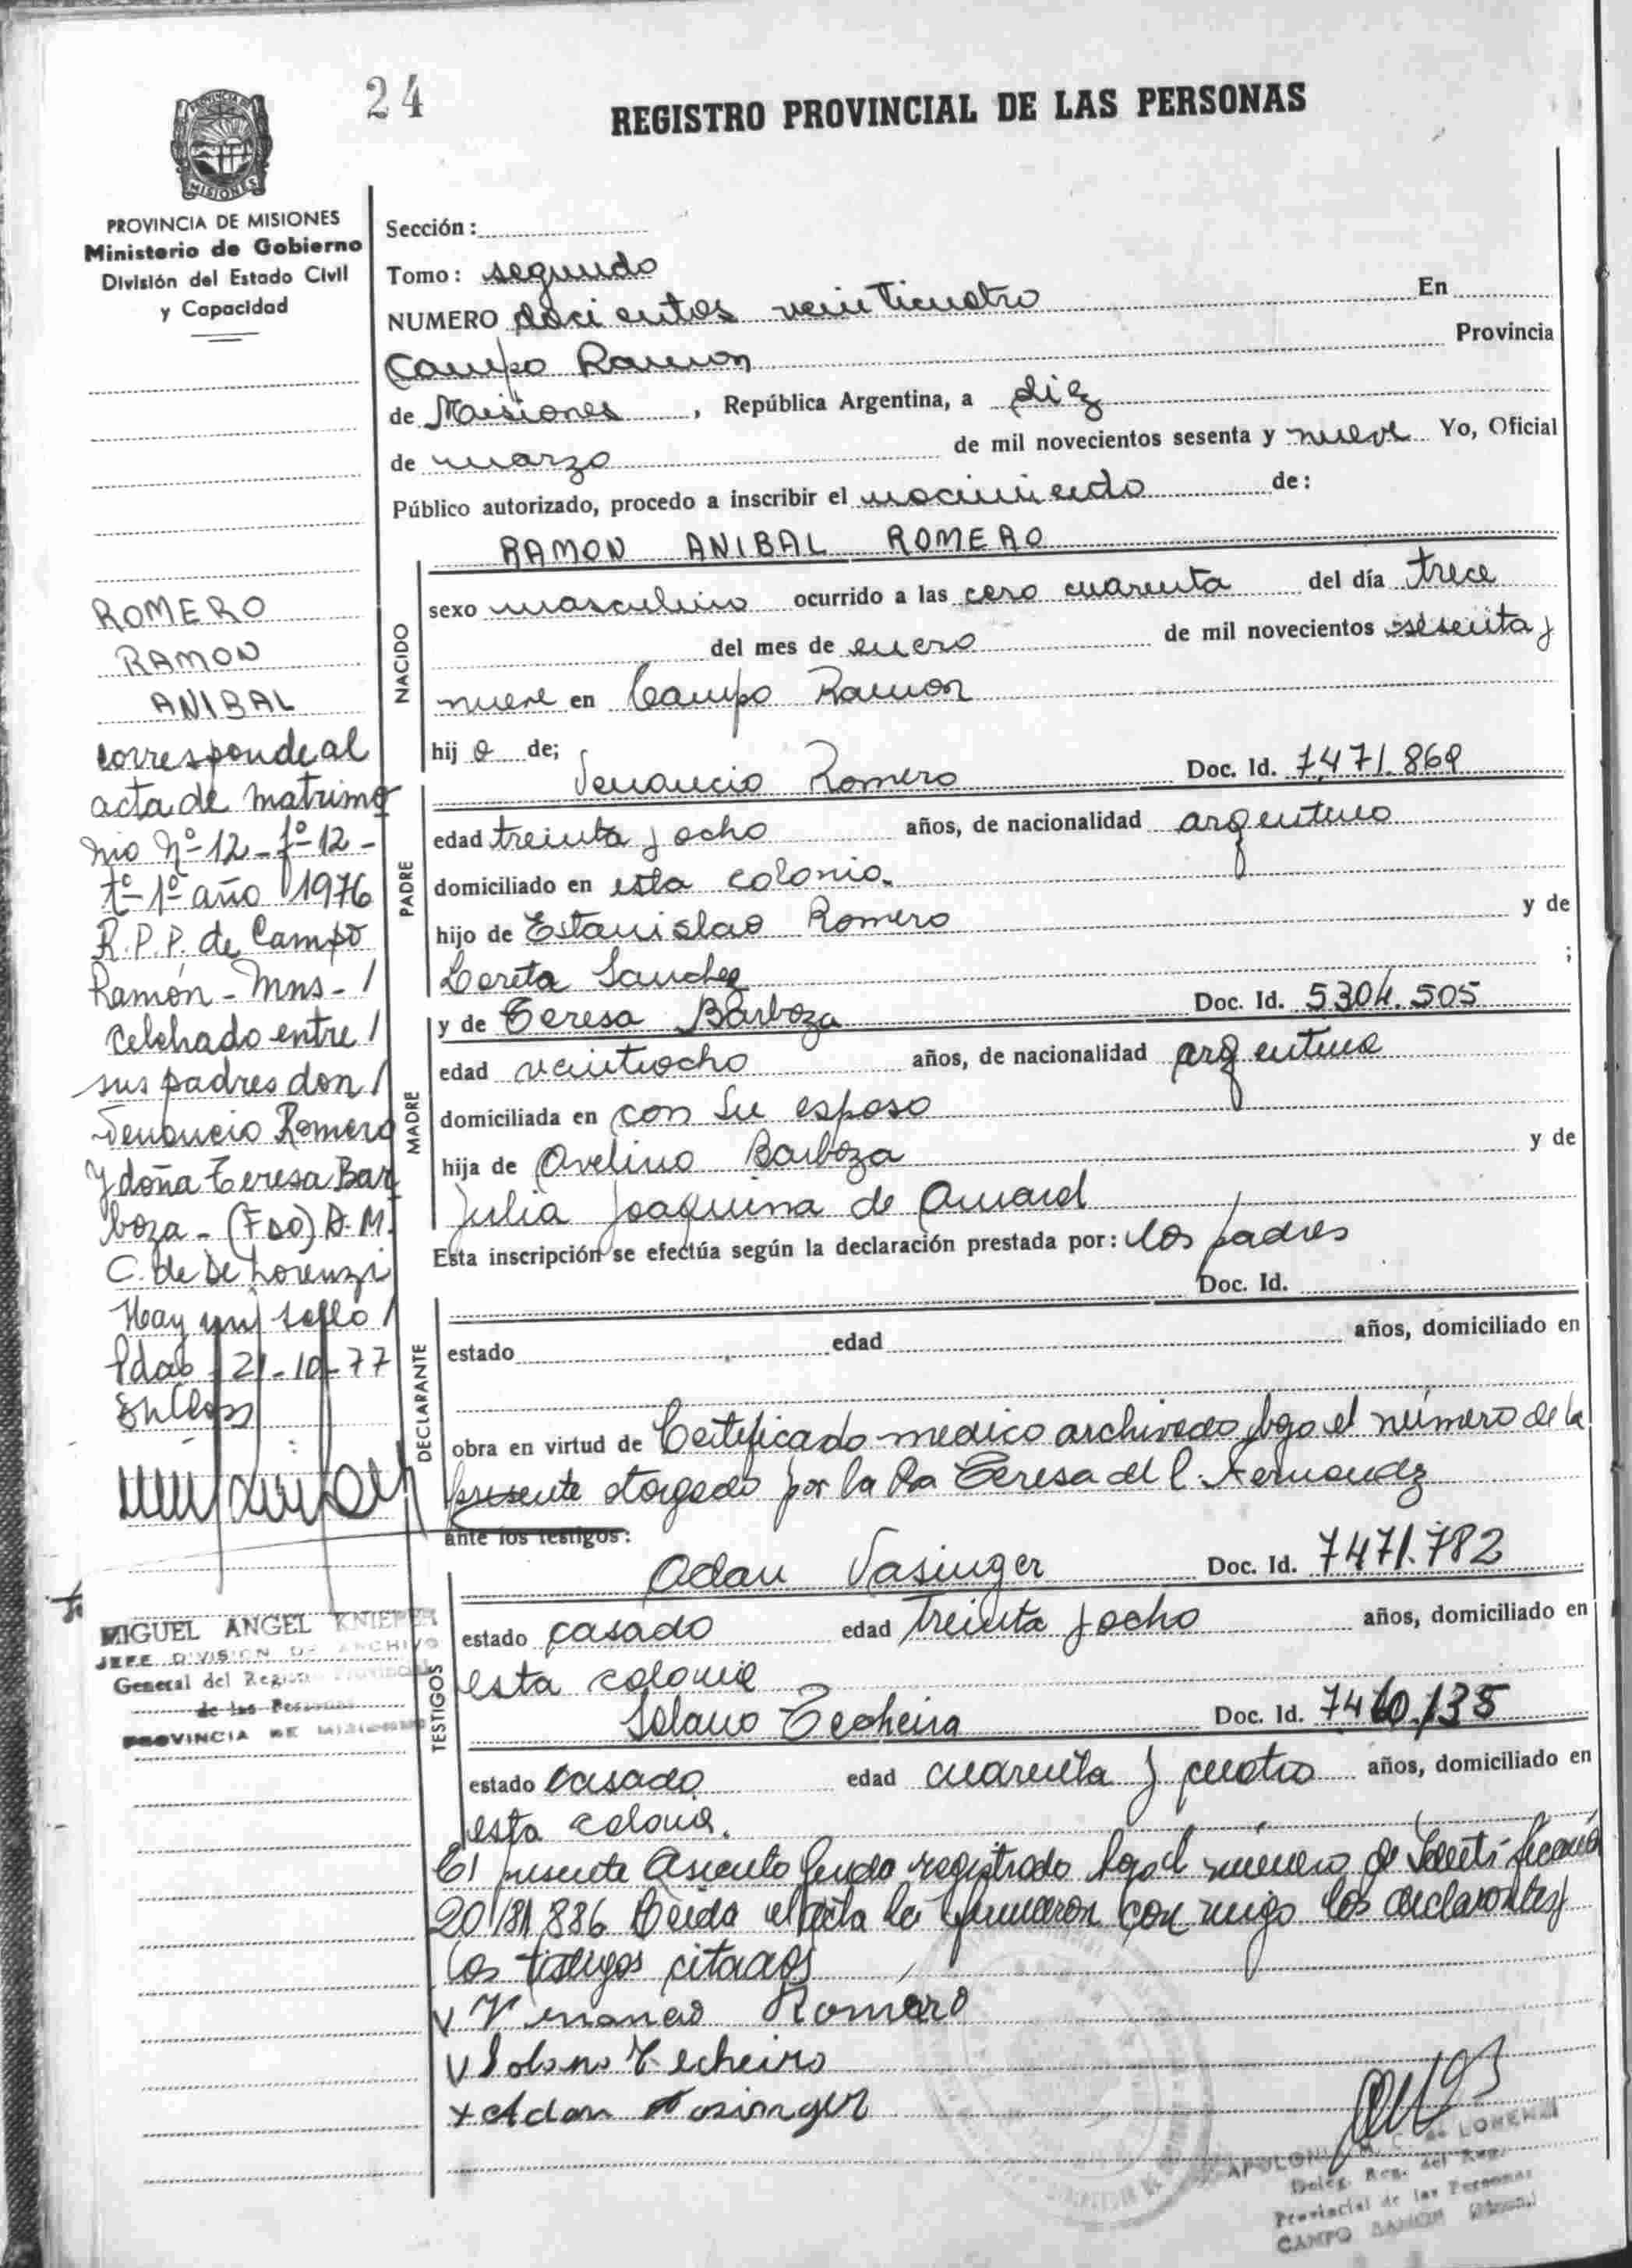 24
REGISTRO PROVINCIAL DE LAS PERSONAS
PROVINCIA DE
MISIONES
PROVINCIA DE MISIONES
Ministerio de Gobierno
División del Estado Civil
y Capacidad
ROMERO
RAMON
ANIBAL
corresponde al
acta de matrimo
nio Nº 12 - fº 12 -
tº 1º año 1976
R.P.P. de Campo
Ramón - Mns - /
celebrado entre /
sus padres don /
Venancio Romero
y doña Teresa Bar
boza - (FDO) A. M.
C. de De Lorenzi
Hay un sello /
Pdas 21-10-77
MIGUEL ANGEL KNIEPER
JEFE DIVISION DE ARCHIVO
General del Registro Provincial
de las Personas
PROVINCIA DE MISIONES
Sección:
Tomo: segundo
NUMERO docientos veinticuatro En
Campo Ramon Provincia
de Misiones, República Argentina, a diez
de marzo de mil novecientos sesenta y nueve Yo, Oficial
Público autorizado, procedo a inscribir el nacimiendo de:
RAMON ANIBAL ROMERO
NACIDO
sexo masculino ocurrido a las cero cuarenta del día trece
del mes de enero de mil novecientos sesenta y
nueve en Campo Ramon
hijo de;
Venancio Romero Doc. Id. 7.471.869
PADRE
edad treinta y ocho años, de nacionalidad argentino
domiciliado en esta colonia.
hijo de Estanislao Romero y de
Loreta Sanchez ;
y de Teresa Barboza Doc. Id. 5304.505
MADRE
edad veintiocho años, de nacionalidad argentina
domiciliada en con su esposo
hija de Avelino Barboza y de
Julia Joaquina de Amaral
Esta inscripción se efectúa según la declaración prestada por: los padres
Doc. Id.
DECLARANTE
estado edad años, domiciliado en
obra en virtud de Certificado medico archivado bajo el número de la
presente otorgado por la Teresa del C. Fernandez
ante los testigos:
Adan Vasinger Doc. Id. 7471.782
TESTIGOS
estado casado edad treinta y ocho años, domiciliado en
esta colonia
Solano Techeira Doc. Id. 135
estado casado edad cuarenta y cuatro años, domiciliado en
esta colonia.
El presente Asiento queda registrado bajo el número de
20.181.886 Leida el acta la firmaron con migo los declarantes y
los testigos citados
Venancio Romero
Solano Techeiro
x Adan
APOLONIA M. C. de LORENZI
Deleg. Reg. del Reg.
Provincial de las Personas
CAMPO RAMON (Mnes.)